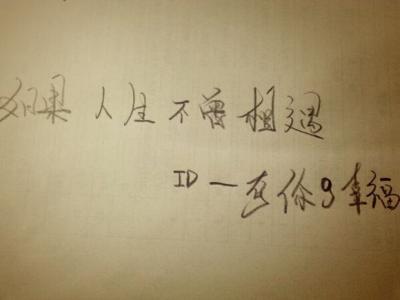 如果人生不曾相遇
ID一有你9幸福